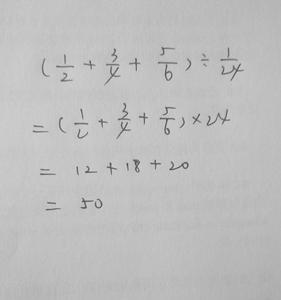 (1/2 + 3/4 + 5/6) ÷ 1/24
= (1/2 + 3/4 + 5/6) × 24
= 12 + 18 + 20
= 50